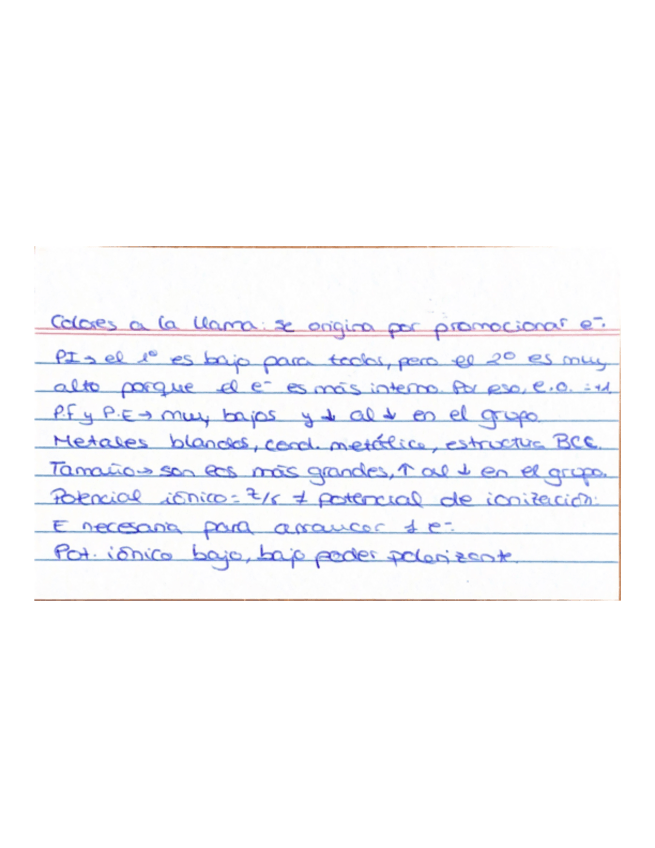 Colores a la llama: se origina por promocionar e⁻.
PI→ el 1º es bajo para todos, pero el 2º es muy
alto porque el e⁻ es más interno. Por eso, e.o. = +1
P.F y P.E → muy bajos y ↓ al ↓ en el grupo
Metales blandos, cond. metálico, estructura BCC.
Tamaño→ son los más grandes, ↑ al ↓ en el grupo.
Potencial iónico = z/r ≠ potencial de ionización:
E necesaria para arrancar 1 e⁻.
Pot. iónico bajo, bajo poder polarizante.